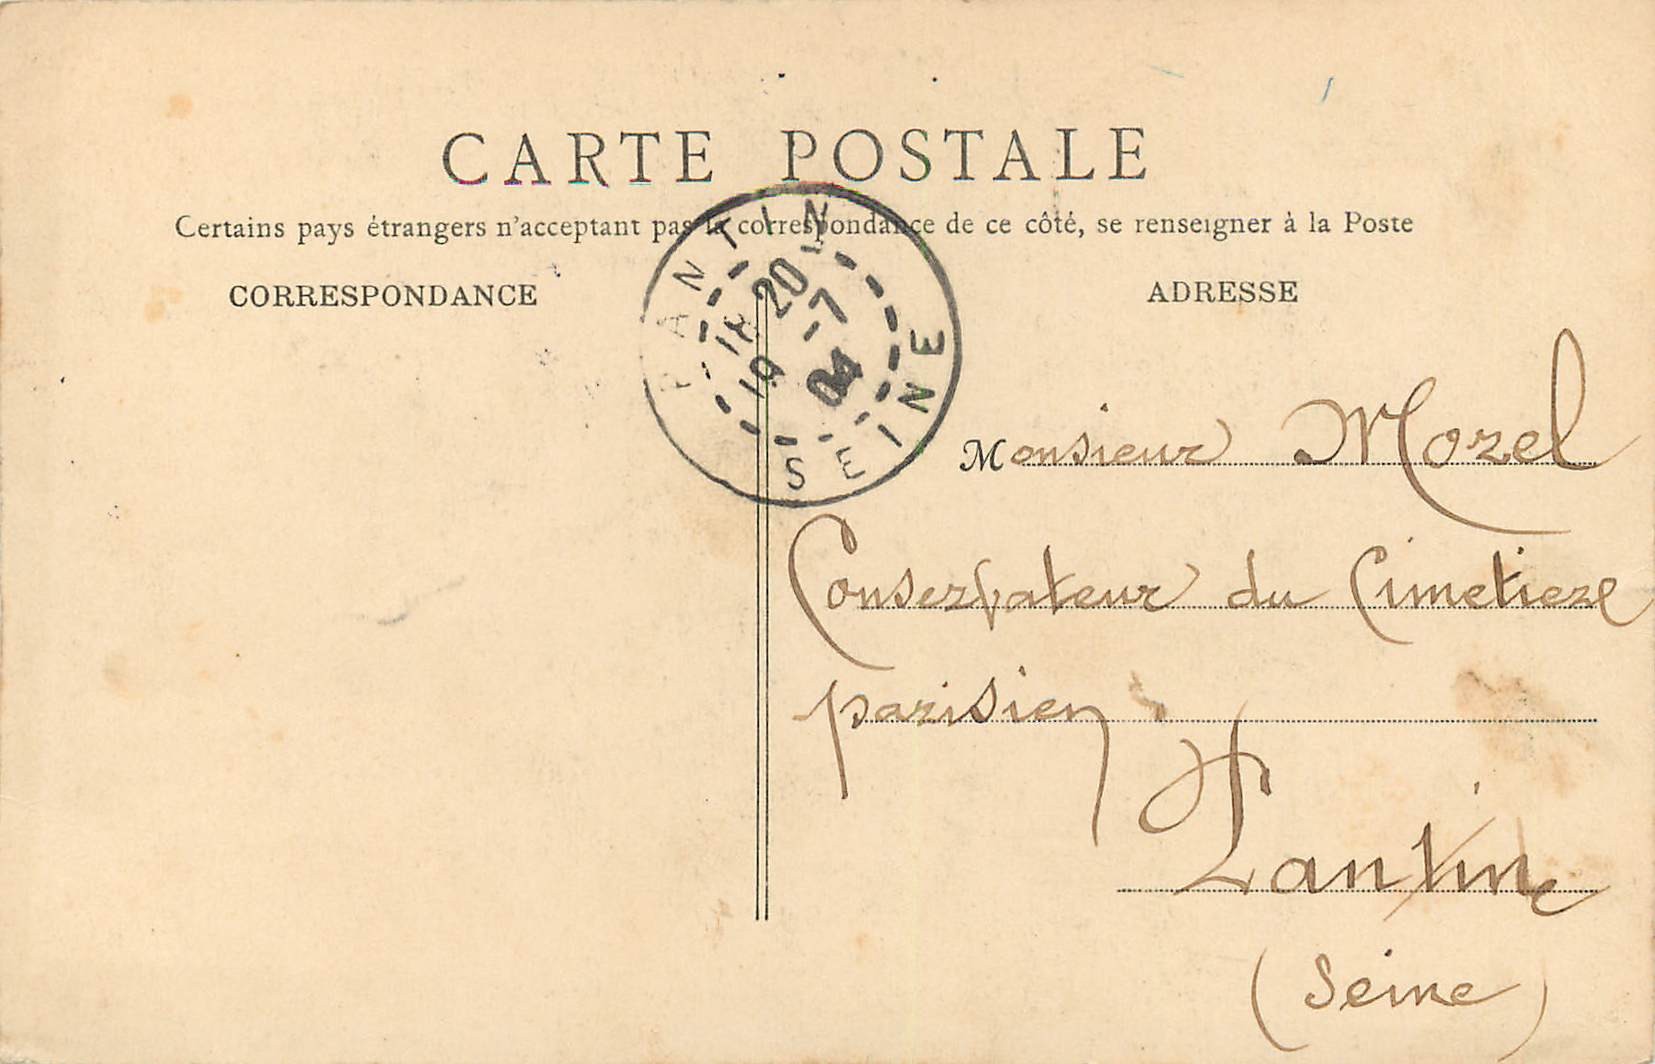 CARTE POSTALE
Certains pays étrangers n'acceptant pas la correspondance de ce côté, se renseigner à la Poste
CORRESPONDANCE
ADRESSE
PANTIN
18 20
19 -7
04
SEINE
Monsieur Morel
Conservateur du Cimetiere
parisien
Pantin
(Seine)